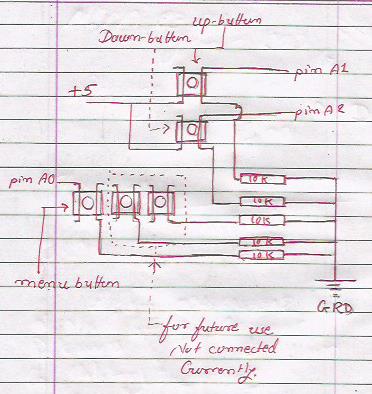 up-button
Down-button
pin A1
+5
pin A2
pin A0
10K
10K
10K
10K
10K
menu button
GRD
for future use
Not connected
Currently.